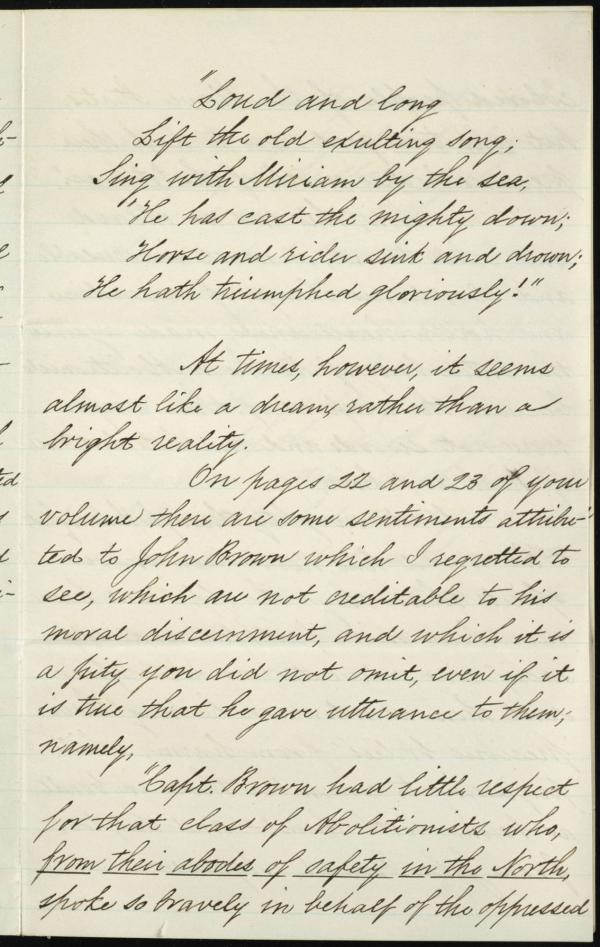 "Loud and long
Lift the old exulting song;
Sing with Miriam by the sea,
'He has cast the mighty down;
Horse and rider sink and drown;
He hath triumphed gloriously!'"
At times, however, it seems
almost like a dream, rather than a
bright reality.
On pages 22 and 23 of your
volume there are some sentiments attribu-
ted to John Brown which I regretted to
see, which are not creditable to his
moral discernment, and which it is
a pity you did not omit, even if it
is true that he gave utterance to them;
namely,
"Capt. Brown had little respect
for that class of Abolitionists who,
from their abodes of safety in the North,
spoke so bravely in behalf of the oppressed